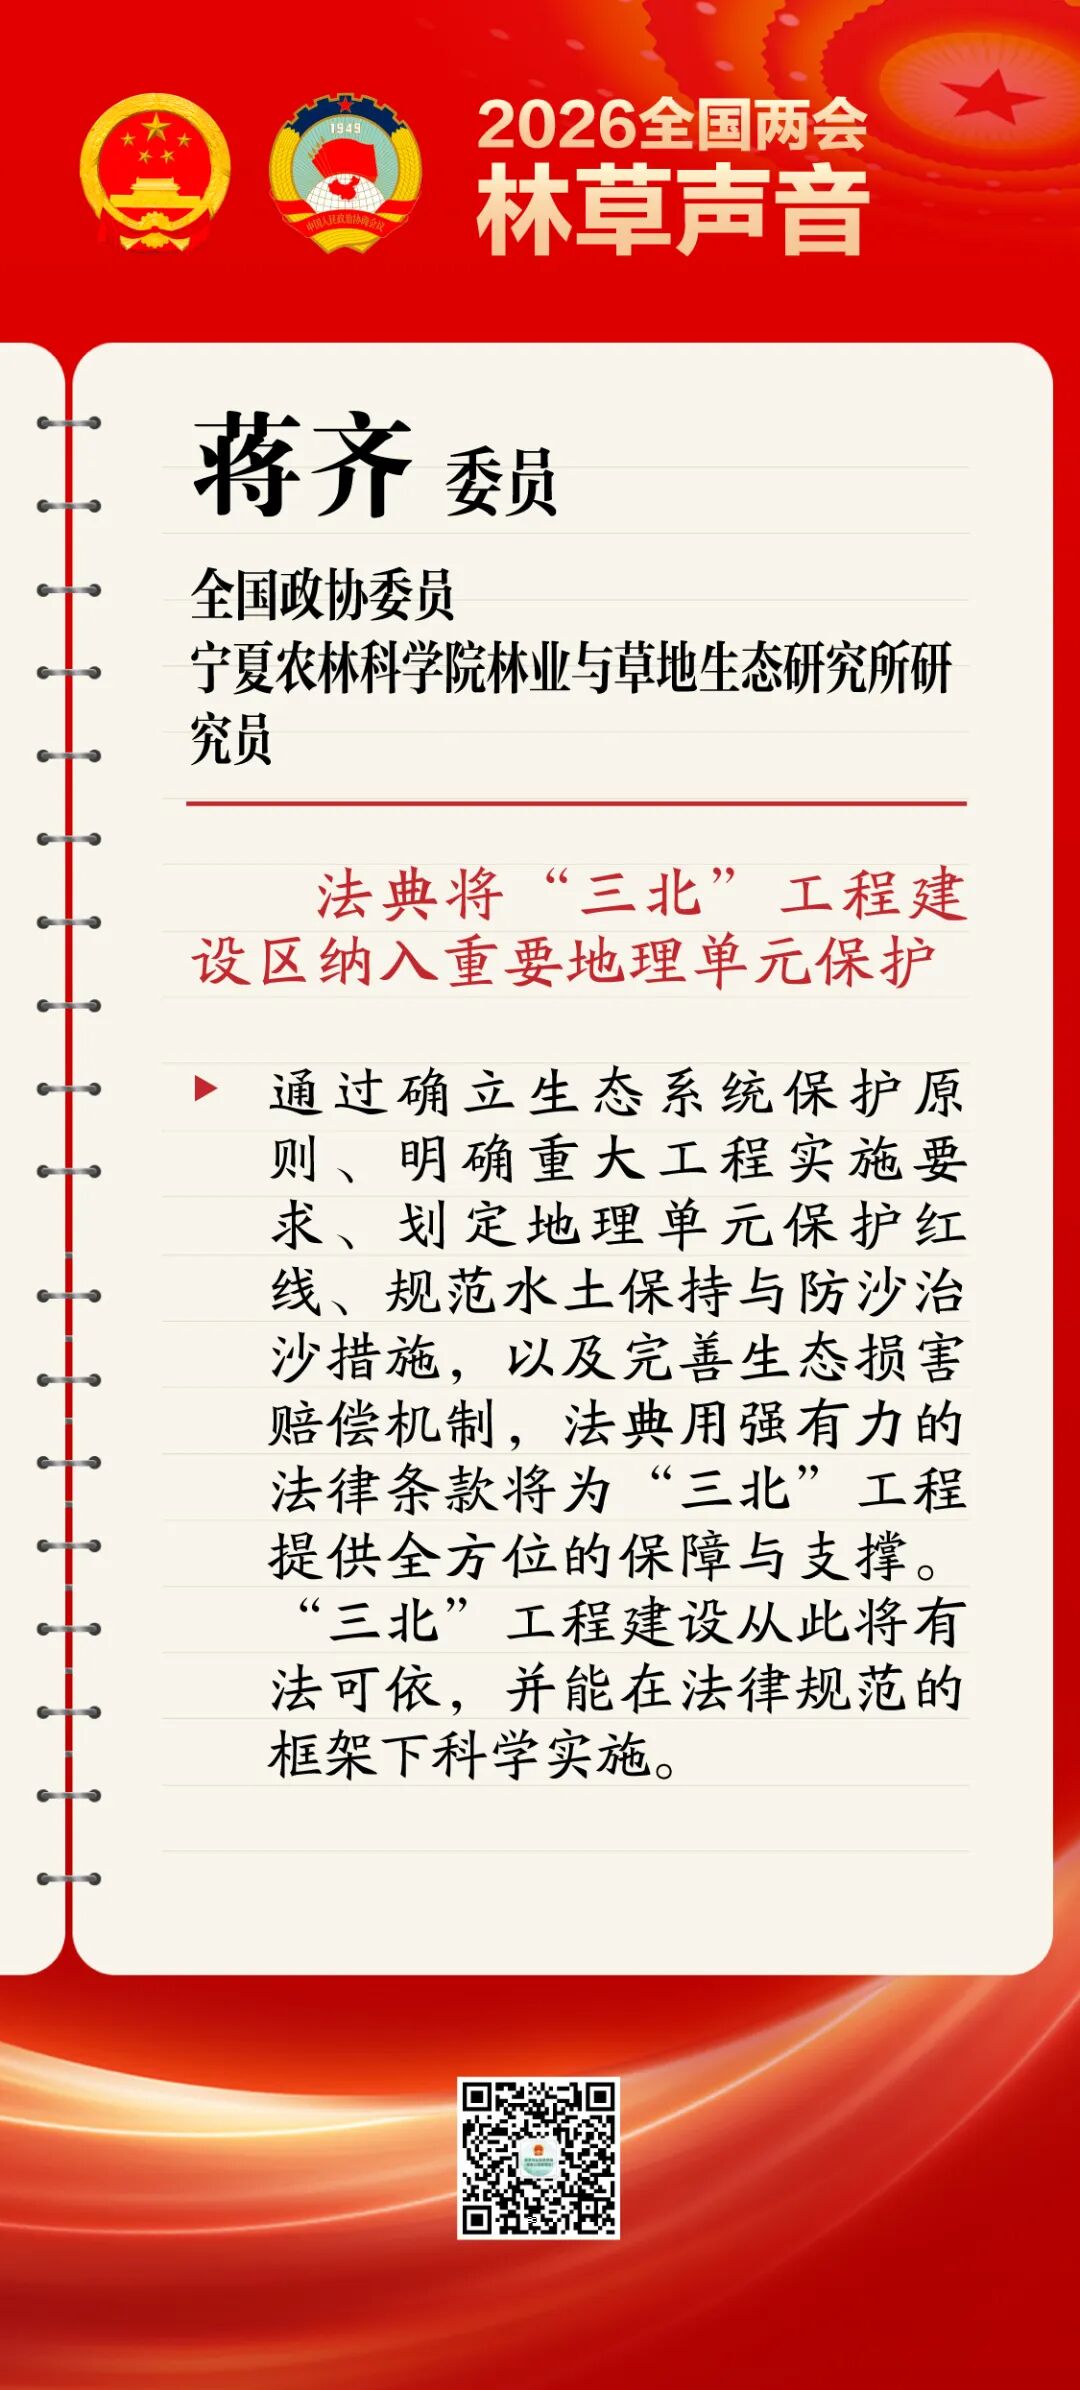 1949
中国人民政治协商会议
2026全国两会
林草声音
蒋齐 委员
全国政协委员
宁夏农林科学院林业与草地生态研究所研
究员
法典将“三北”工程建
设区纳入重要地理单元保护
通过确立生态系统保护原
则、明确重大工程实施要
求、划定地理单元保护红
线、规范水土保持与防沙治
沙措施，以及完善生态损害
赔偿机制，法典用强有力的
法律条款将为“三北”工程
提供全方位的保障与支撑。
“三北”工程建设从此将有
法可依，并能在法律规范的
框架下科学实施。